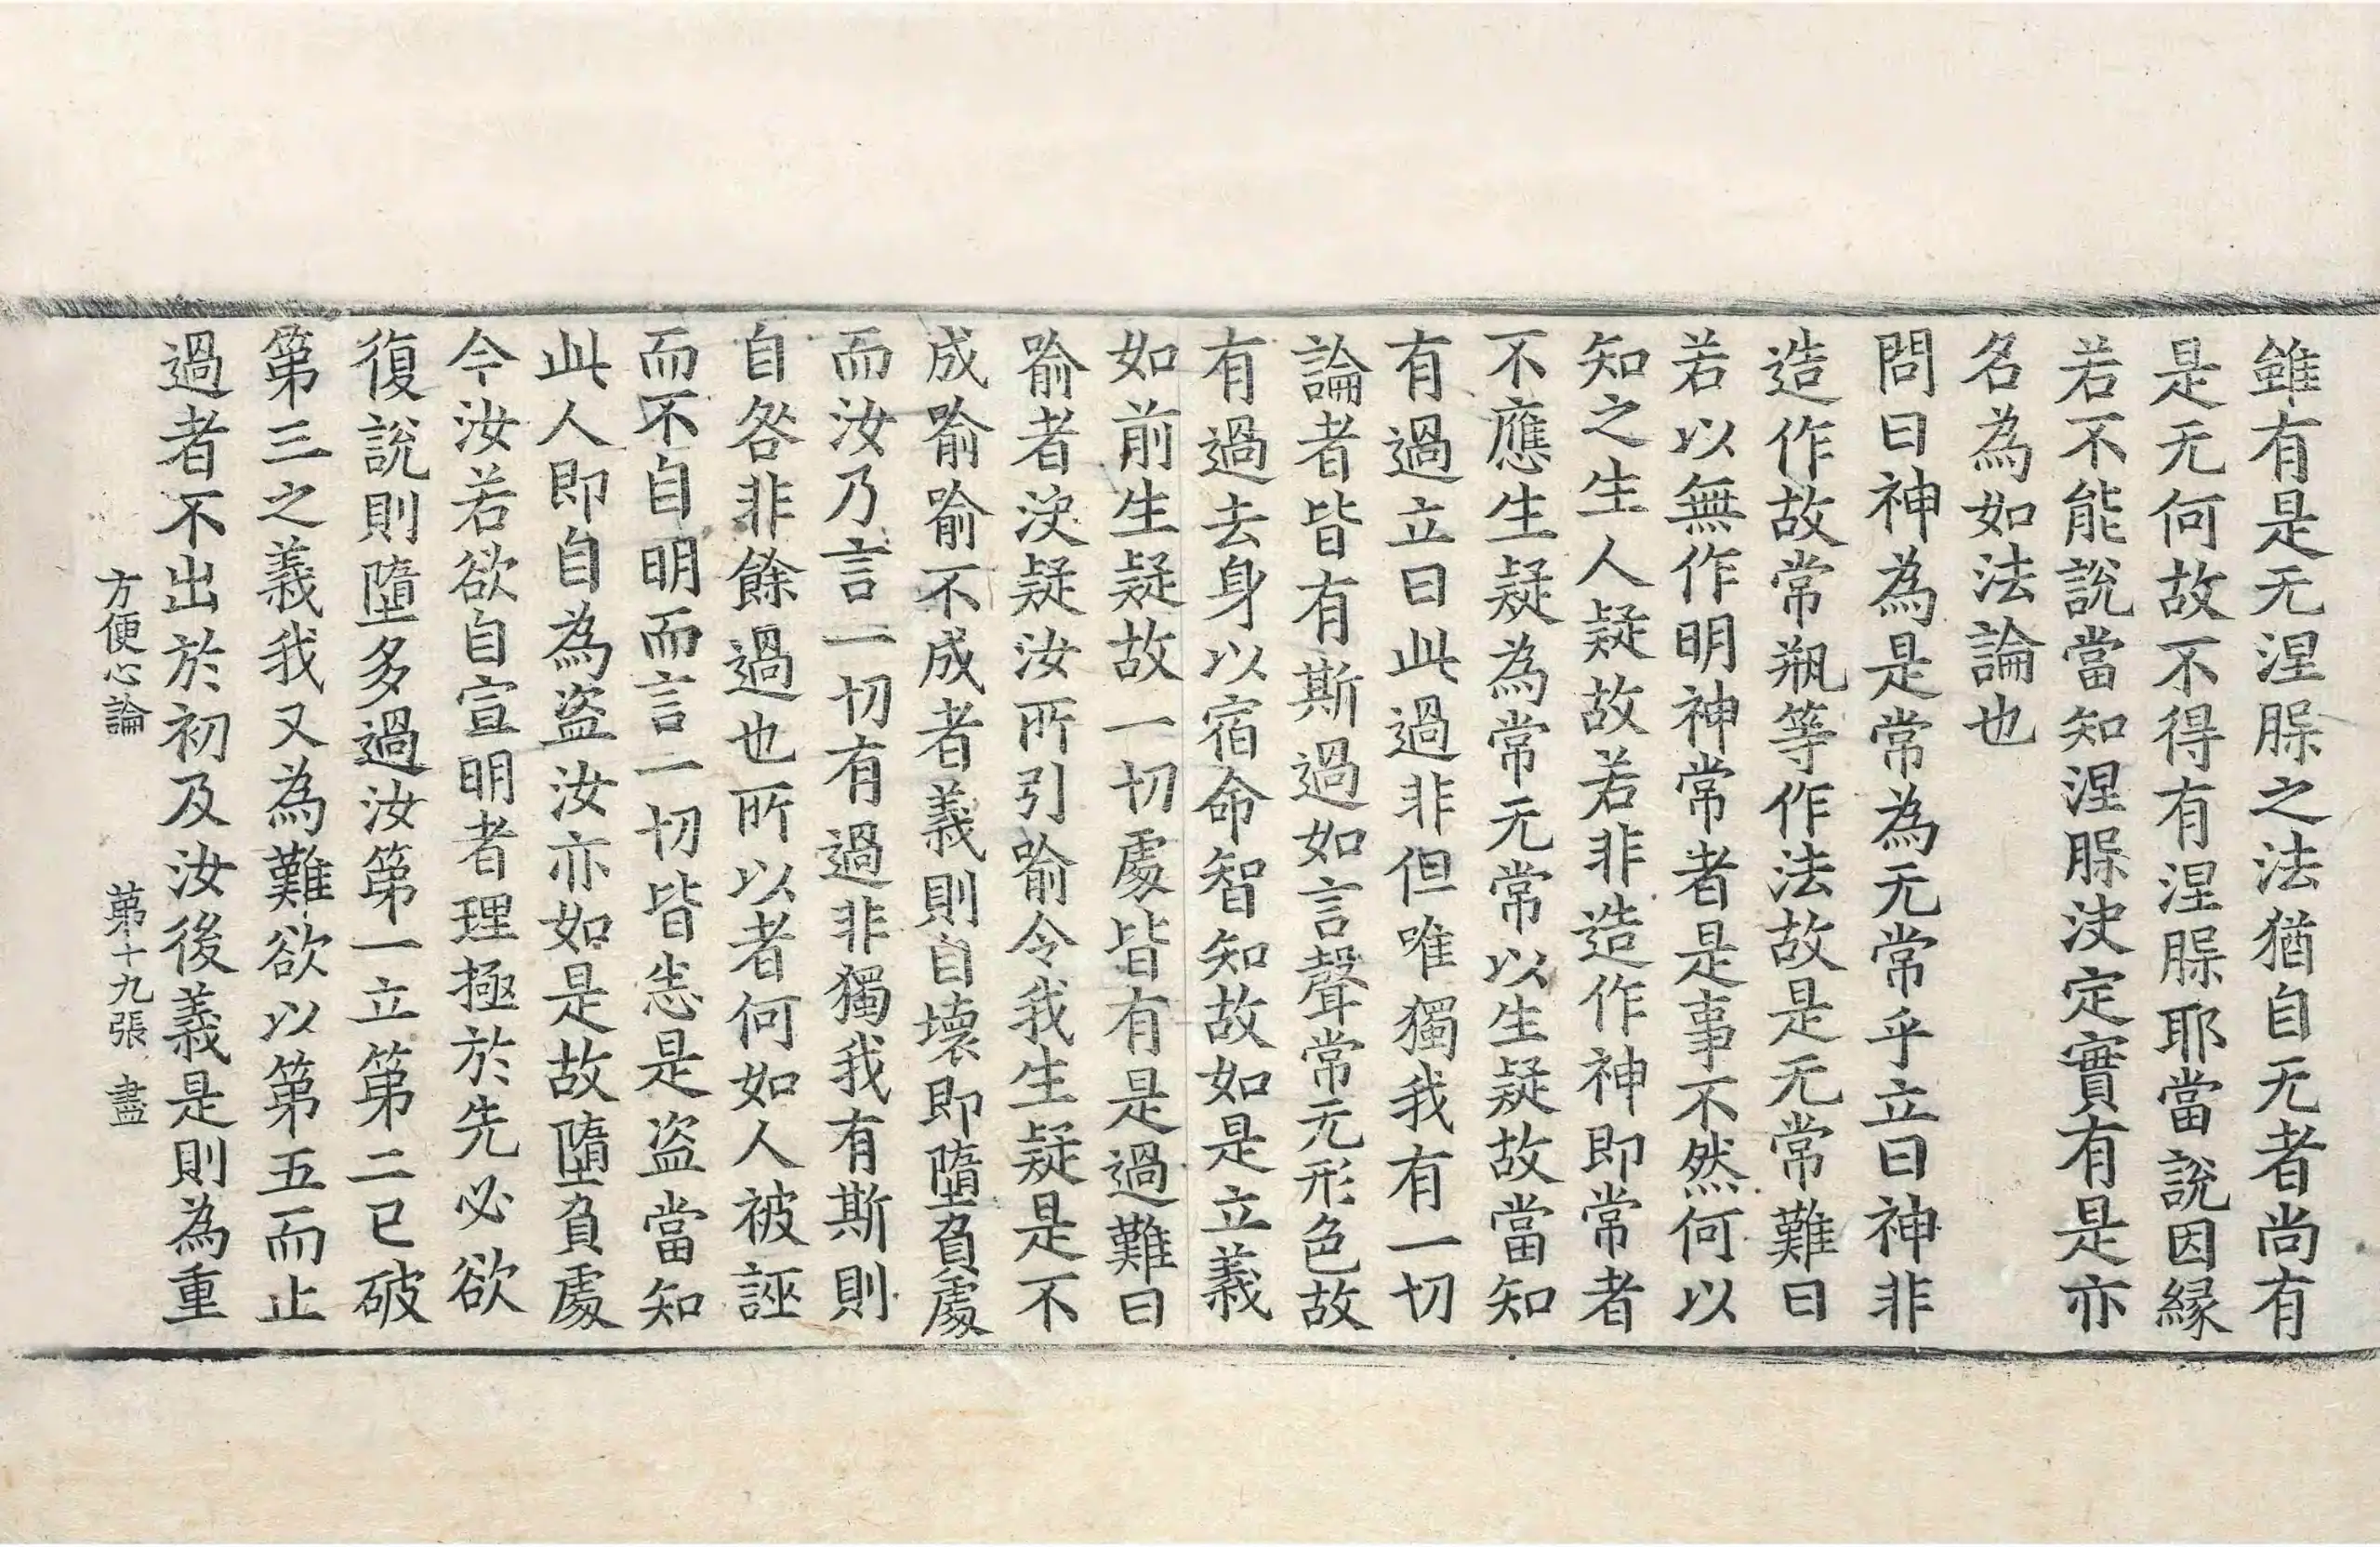 雖有是无涅槃之法猶自无者尚有
是无何故不得有涅槃耶當說因縁
若不能說當知涅槃決定實有是亦
名為如法論也
問曰神為是常為无常乎立曰神非
造作故常瓶等作法故是无常難曰
若以無作明神常者是事不然何以
知之生人疑故若非造作神即常者
不應生疑為常无常以生疑故當知
有過立曰此過非但唯獨我有一切
論者皆有斯過如言聲常无形色故
有過去身以宿命智知故如是立義
如前生疑故一切處皆有是過難曰
喻者決疑汝所引喻令我生疑是不
成喻喻不成者義則自壞即墮負處
而汝乃言一切有過非獨我有斯則
自咎非餘過也所以者何如人被誣
而不自明而言一切皆悉是盜當知
此人即自為盜汝亦如是故墮負處
今汝若欲自宣明者理極於先必欲
復說則墮多過汝第一立第二已破
第三之義我又為難欲以第五而止
過者不出於初及汝後義是則為重
方便心論 第十九張 盡